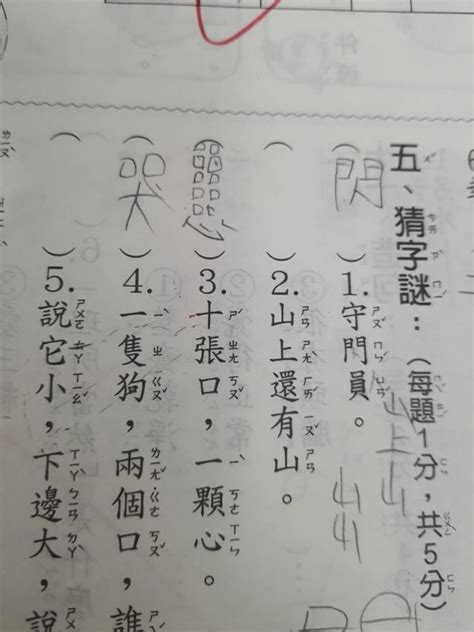 五、猜字謎：（每題1分，共5分）
山上山
（閃）1.守門員。
（ ）2.山上還有山。
（ ）3.十張口，一顆心。
（哭）4.一隻狗，兩個口，誰
（ ）5.說它小，下邊大，說